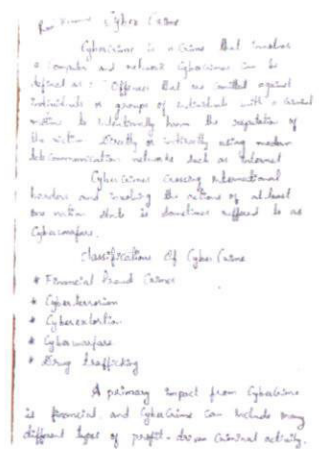 Cyber Crime
Cybercrime is a Crime that involves
a Computer and network Cybercrimes can be
defined as : Offences that are comitted against
individuals or groups of individuals with a criminal
motive to intentionally harm the reputation of
the victim directly or indirectly using modern
telecommunication networks such as Internet
Cyber Crimes Crossing International
borders and involving the actions of at least
one nation state is sometimes reffered to as
Cyberwarfare.
Classifications Of Cyber Crime
* Financial fraud Crimes
* Cyberterrorism
* Cyberextortion
* Cyberwarfare
* Drug trafficking
A primary impact from Cybercrime
is financial and Cybercrime can include many
different types of profit-driven Criminal activity.